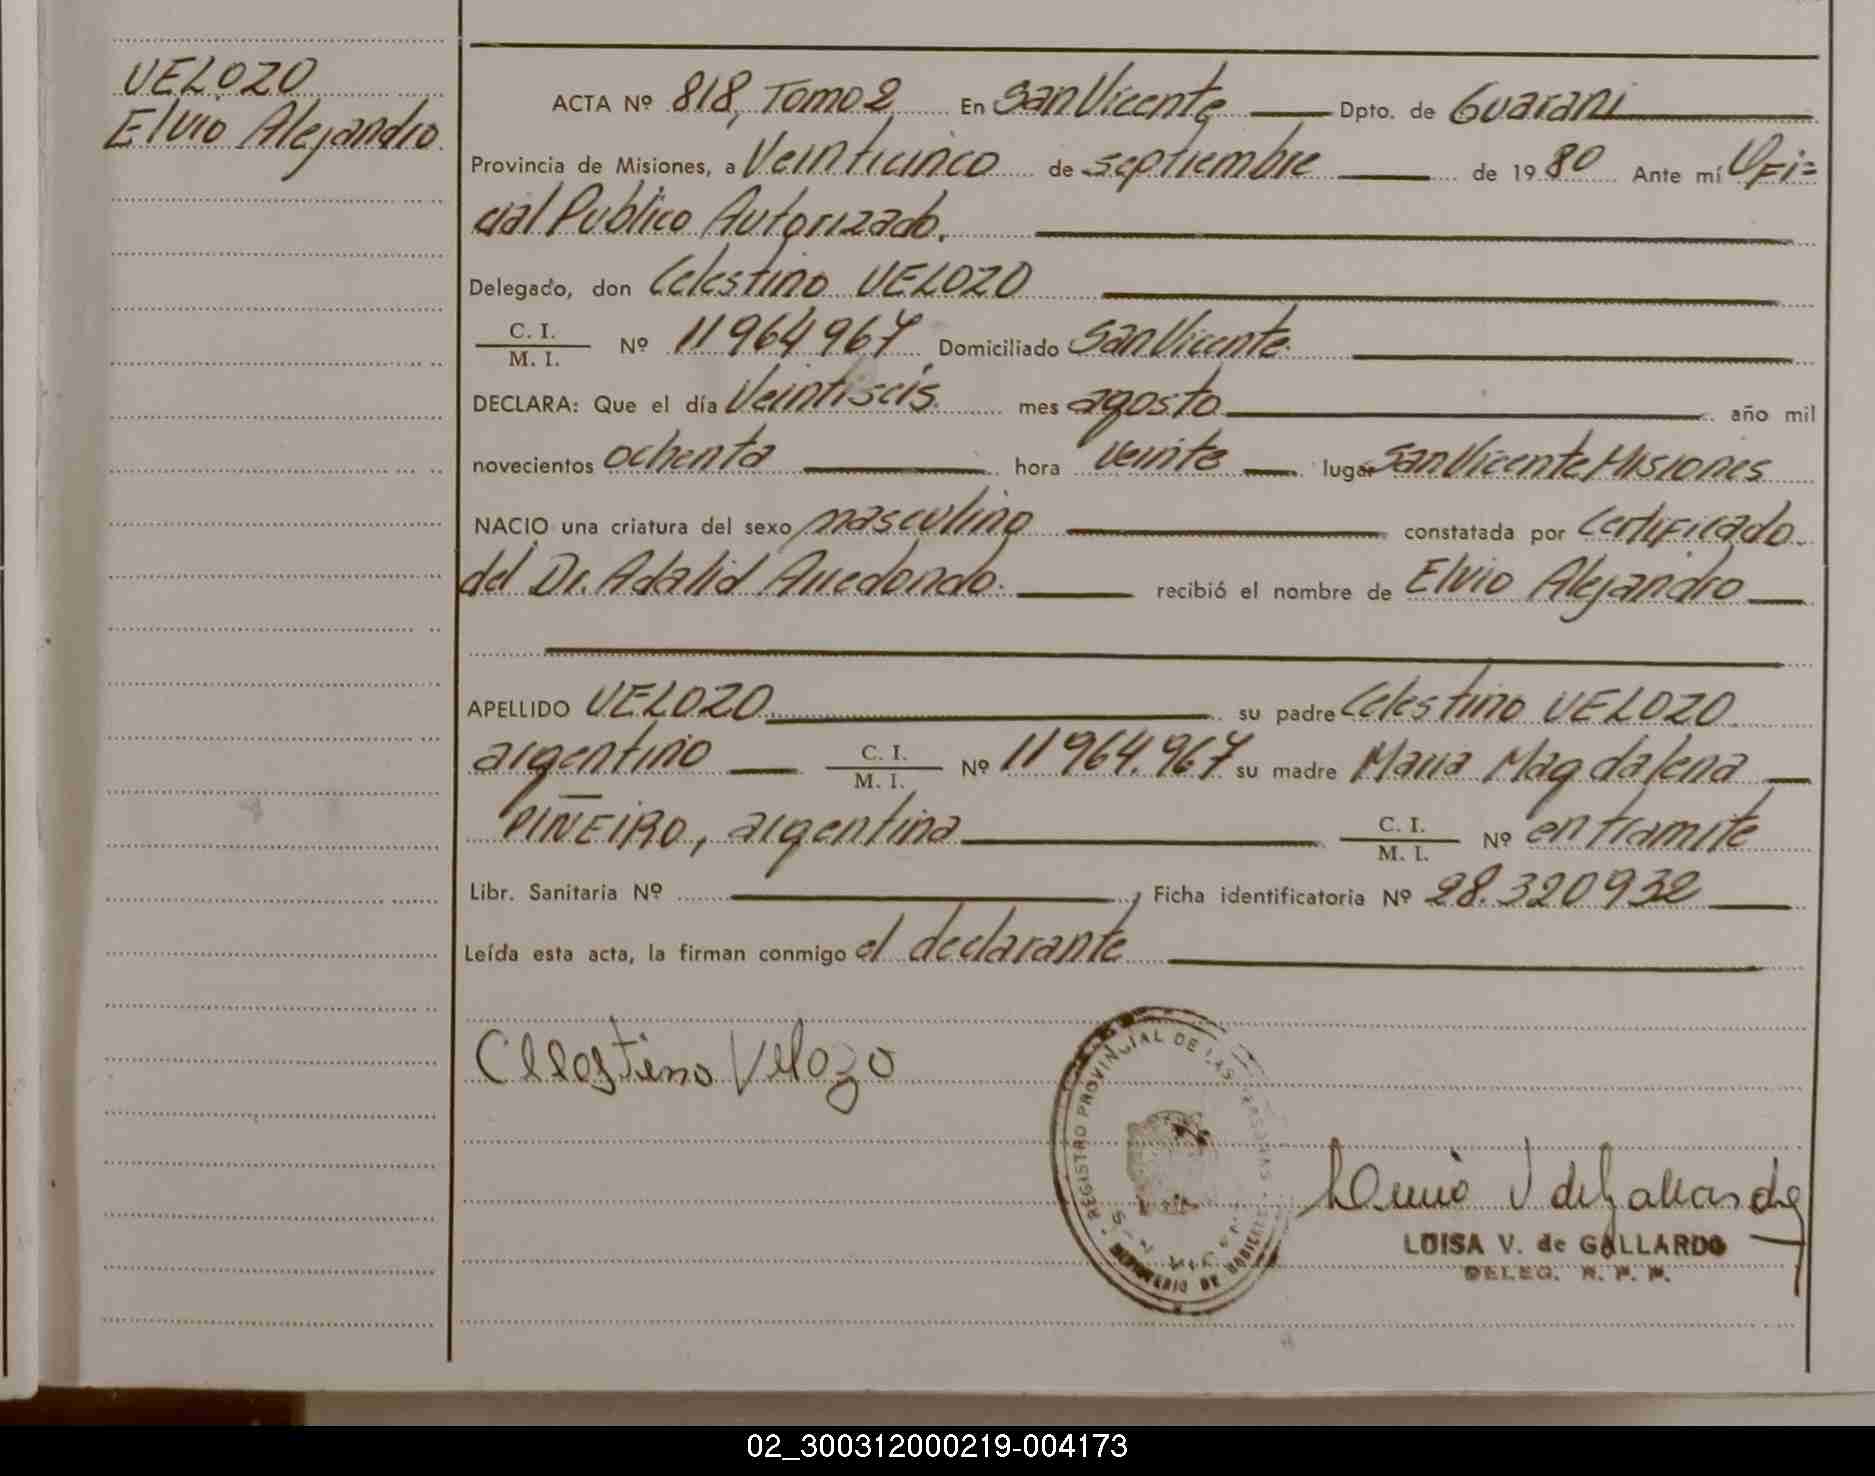 VELOZO
Elvio Alejandro
ACTA Nº 818, Tomo 2 En San Vicente Dpto. de Guarani
Provincia de Misiones, a Veinticinco de septiembre de 1980 Ante mí Ofi=
cial Publico Autorizado.
Delegado, don Celestino VELOZO
C. I.
M. I. Nº 11964967 Domiciliado San Vicente
DECLARA: Que el día Veintiseis mes agosto año mil
novecientos ochenta hora veinte lugar San Vicente Misiones
NACIO una criatura del sexo masculino constatada por Certificado
del Dr. Adalid Arredondo. recibió el nombre de Elvio Alejandro
APELLIDO VELOZO su padre Celestino VELOZO
argentino C. I.
M. I. Nº 11964.967 su madre Maria Magdalena
PIÑEIRO, argentina C. I.
M. I. Nº en tramite
Libr. Sanitaria Nº , Ficha identificatoria Nº 28.320932
Leída esta acta, la firman conmigo el declarante
Celestino Velozo
REGISTRO PROVINCIAL DE LAS PERSONAS
MINISTERIO DE GOBIERNO
LUISA V. de GALLARDO
DELEG. R. P. P.
02_300312000219-004173